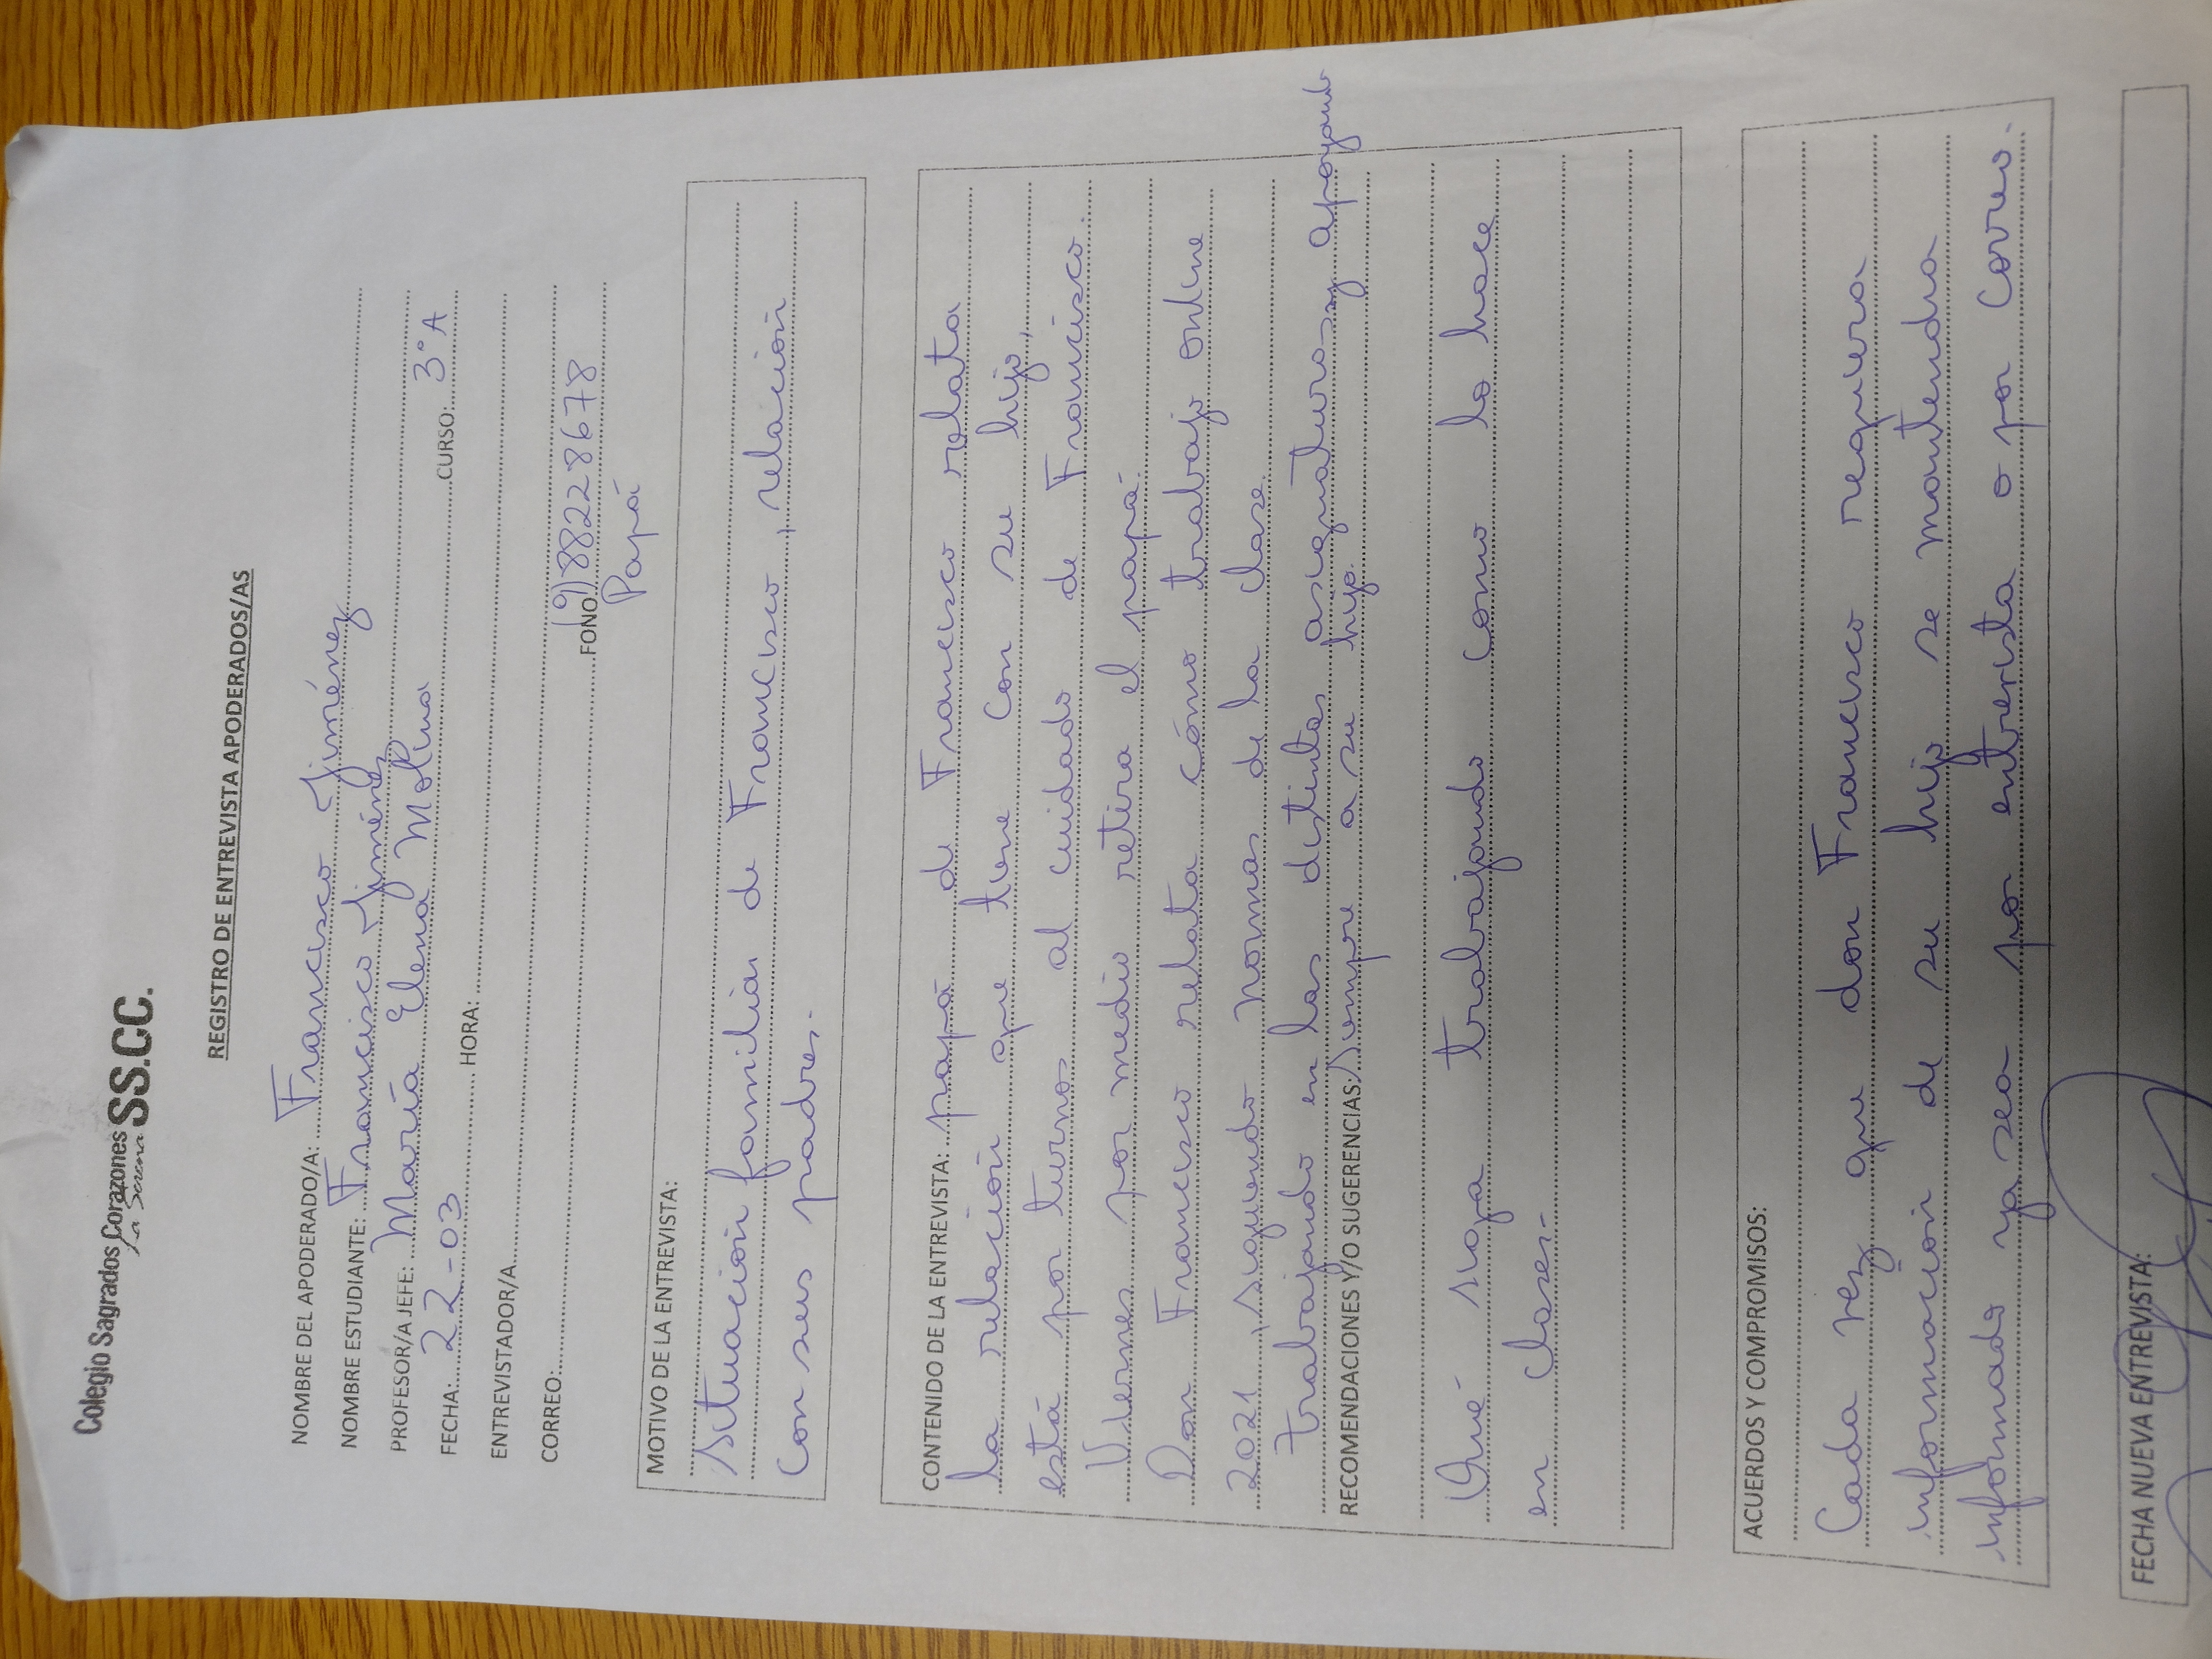 Colegio Sagrados Corazones
La Serena SS.CC.
REGISTRO DE ENTREVISTA APODERADOS/AS
NOMBRE DEL APODERADO/A: Francisco Jiménez
NOMBRE ESTUDIANTE: Francisco Jiménez
PROFESOR/A JEFE: María Elena Molina
FECHA: 22-03 HORA: CURSO: 3°A
ENTREVISTADOR/A
CORREO: FONO: (9)88228678
Papá
MOTIVO DE LA ENTREVISTA:
Situación familiar de Francisco, relación
con sus padres.
CONTENIDO DE LA ENTREVISTA: papá de Francisco relata
la relación que tiene con su hijo,
está por turnos al cuidado de Francisco.
Viernes por medio retira el papá.
Don Francisco relata cómo trabajo online
2021, siguiendo normas de la clase.
trabajando en las distintas asignaturas y apoyando
RECOMENDACIONES Y/O SUGERENCIAS: siempre a su hijo.
Qué siga trabajando como lo hace
en clases.-
ACUERDOS Y COMPROMISOS:
Cada vez que don Francisco requiera
información de su hijo se mantendra
informado ya sea por entrevista o por correo.
FECHA NUEVA ENTREVISTA: